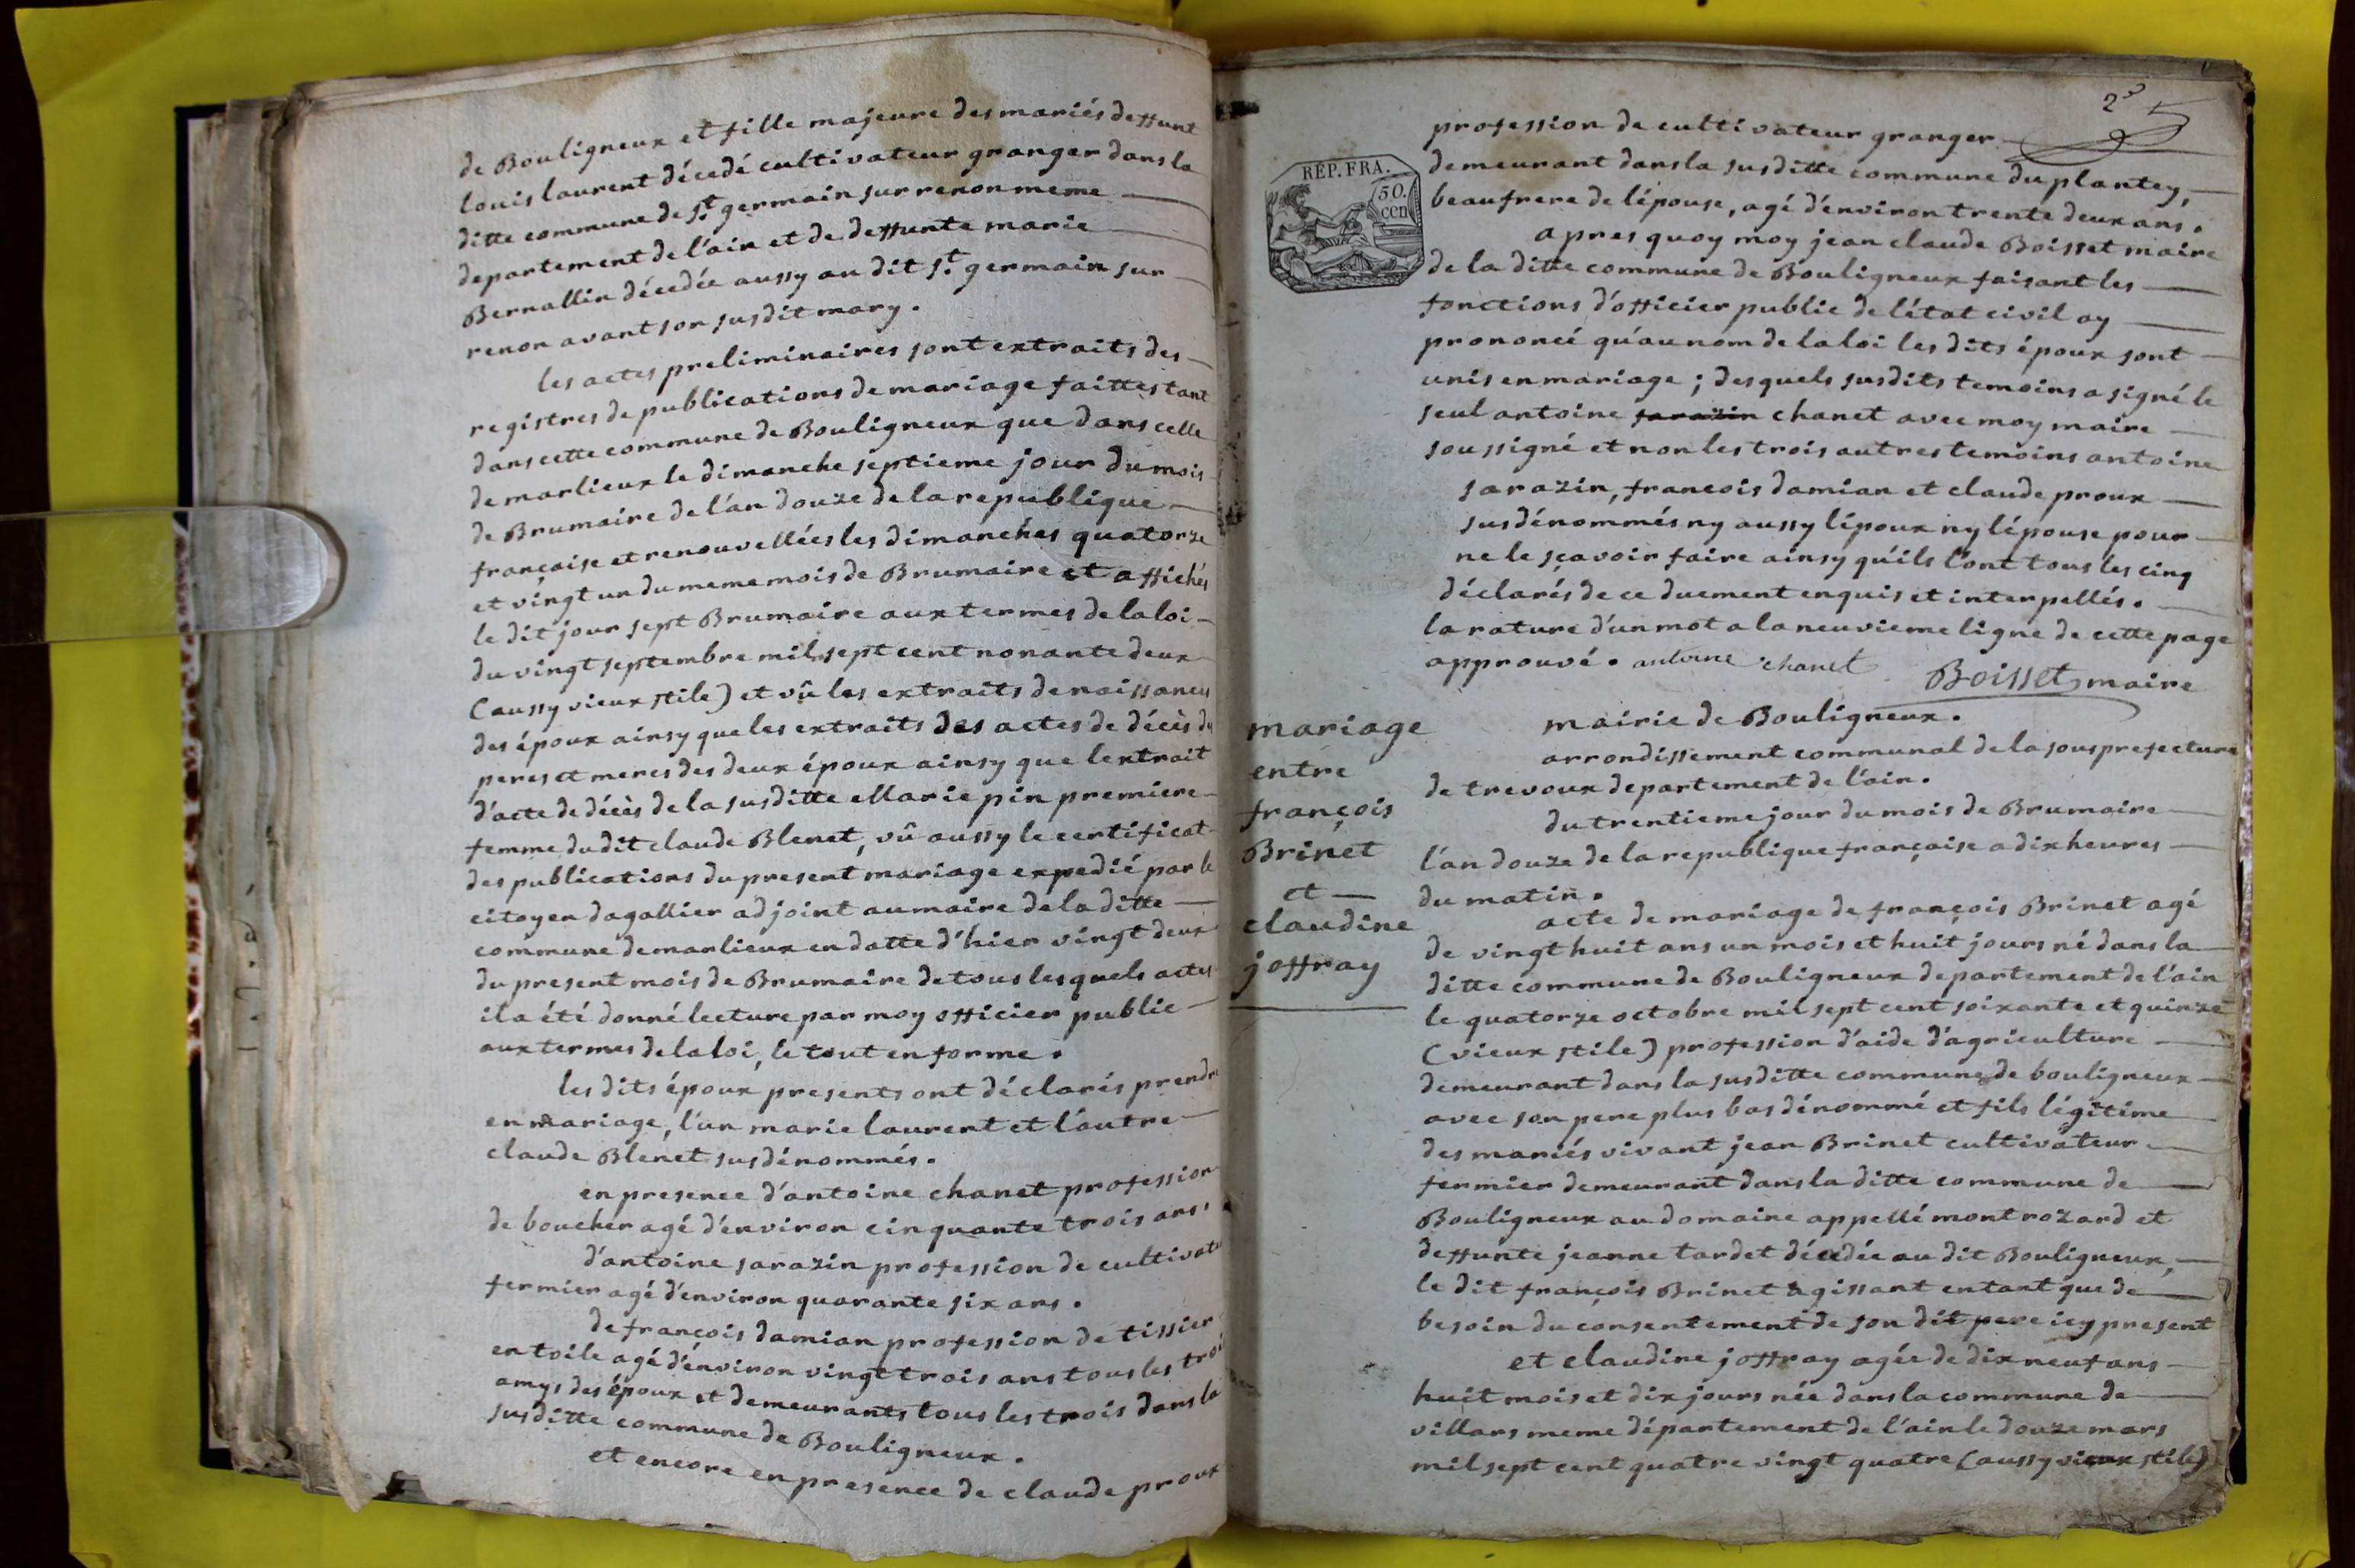 de Bouligneux et fille majeure des mariés deffunt
louis laurent décedé cultivateur granger dans la
ditte commune de st. germain sur renon meme
departement de l'ain et de deffunte marie
Bernallin décedée aussy au dit st. germain sur
renon avant son susdit mary.
les actes preliminaires sont extraits des
registres de publications de mariage faittes tant
dans cette commune de Bouligneux que dans celle
de marlieux le dimanche septieme jour du mois
de Brumaire de l'an douze de la republique
française et renouvellées les dimanches quatorze
et vingt un du meme mois de Brumaire et affichés
le dit jour sept Brumaire aux termes de la loi
du vingt septembre mil sept cent nonante deux
(aussy vieux stile) et vû les extraits de naissances
des époux ainsy que les extraits des actes de décès des
peres et meres des deux époux ainsy que lextrait
d'acte de décès de la susditte Marie pin premiere
femme du dit claude Blenet, vû aussy le certificat
des publications du present mariage expedié par le
citoyen dagallier adjoint au maire de la ditte
commune de marlieux en datte d'hier vingt deux
du present mois de Brumaire de tous lesquels actes
il a été donné lecture par moy officier public
aux termes de la loi, le tout en forme.
les dits époux presents ont déclarés prendre
en mariage, l'un marie laurent et l'autre
claude Blenet susdénommés.
en presence d'antoine chanet profession
de boucher agé d'environ cinquante trois ans,
d'antoine sarazin profession de cultivateur
fermier agé d'environ quarante six ans.
de françois damian profession de tissier
en toile agé d'environ vingt trois ans tous les trois
amys des époux et demeurants tous les trois dans la
susditte commune de Bouligneux.
et encore en presence de claude proux
235
profession de cultivateur granger
demeurant dans la susditte commune du plantey,
beaufrere de l'épouse, agé d'environ trente deux ans.
apres quoy moy jean claude Boisset maire
de la ditte commune de Bouligneux faisant les
fonctions d'officier public de l'état civil ay
prononcé qu'au nom de la loi les dits époux sont
unis en mariage; desquels susdits temoins a signé le
seul antoine sarazin chanet avec moy maire
soussigné et non les trois autres temoins antoine
sarazin, francois damian et claude proux
susdénommés ny aussy l'époux ny l'épouse pour
ne le sçavoir faire ainsy qu'ils l'ont tous les cinq
déclarés de ce duement enquis et interpellés.
la rature d'un mot a la neuvieme ligne de cette page
approuvé. antoine chanet Boisset maire
RÉP. FRA.
50.
cen
mariage
entre
françois
Brinet
et
claudine
joffray
mairie de Bouligneux.
arrondissement communal de la sousprefecture
de trevoux departement de l'ain.
du trentieme jour du mois de Brumaire
l'an douze de la republique française a dix heures
du matin.
acte de mariage de françois Brinet agé
de vingt huit ans un mois et huit jours né dans la
ditte commune de Bouligneux departement de l'ain
le quatorze octobre mil sept cent soixante et quinze
(vieux stile) profession d'aide d'agriculture
demeurant dans la susditte commune de bouligneux
avec son pere plus bas dénommé et fils légitime
des mariés vivant jean Brinet cultivateur
fermier demeurant dans la ditte commune de
Bouligneux au domaine appellé montrozard et
deffunte jeanne tardet décedée au dit Bouligneux,
le dit françois Brinet agissant entant que de
besoin du consentement de son dit pere icy present
et claudine joffray agée de dix neuf ans
huit mois et dix jours née dans la commune de
villars meme département de l'ain le douze mars
mil sept cent quatre vingt quatre (aussy vieux stile)